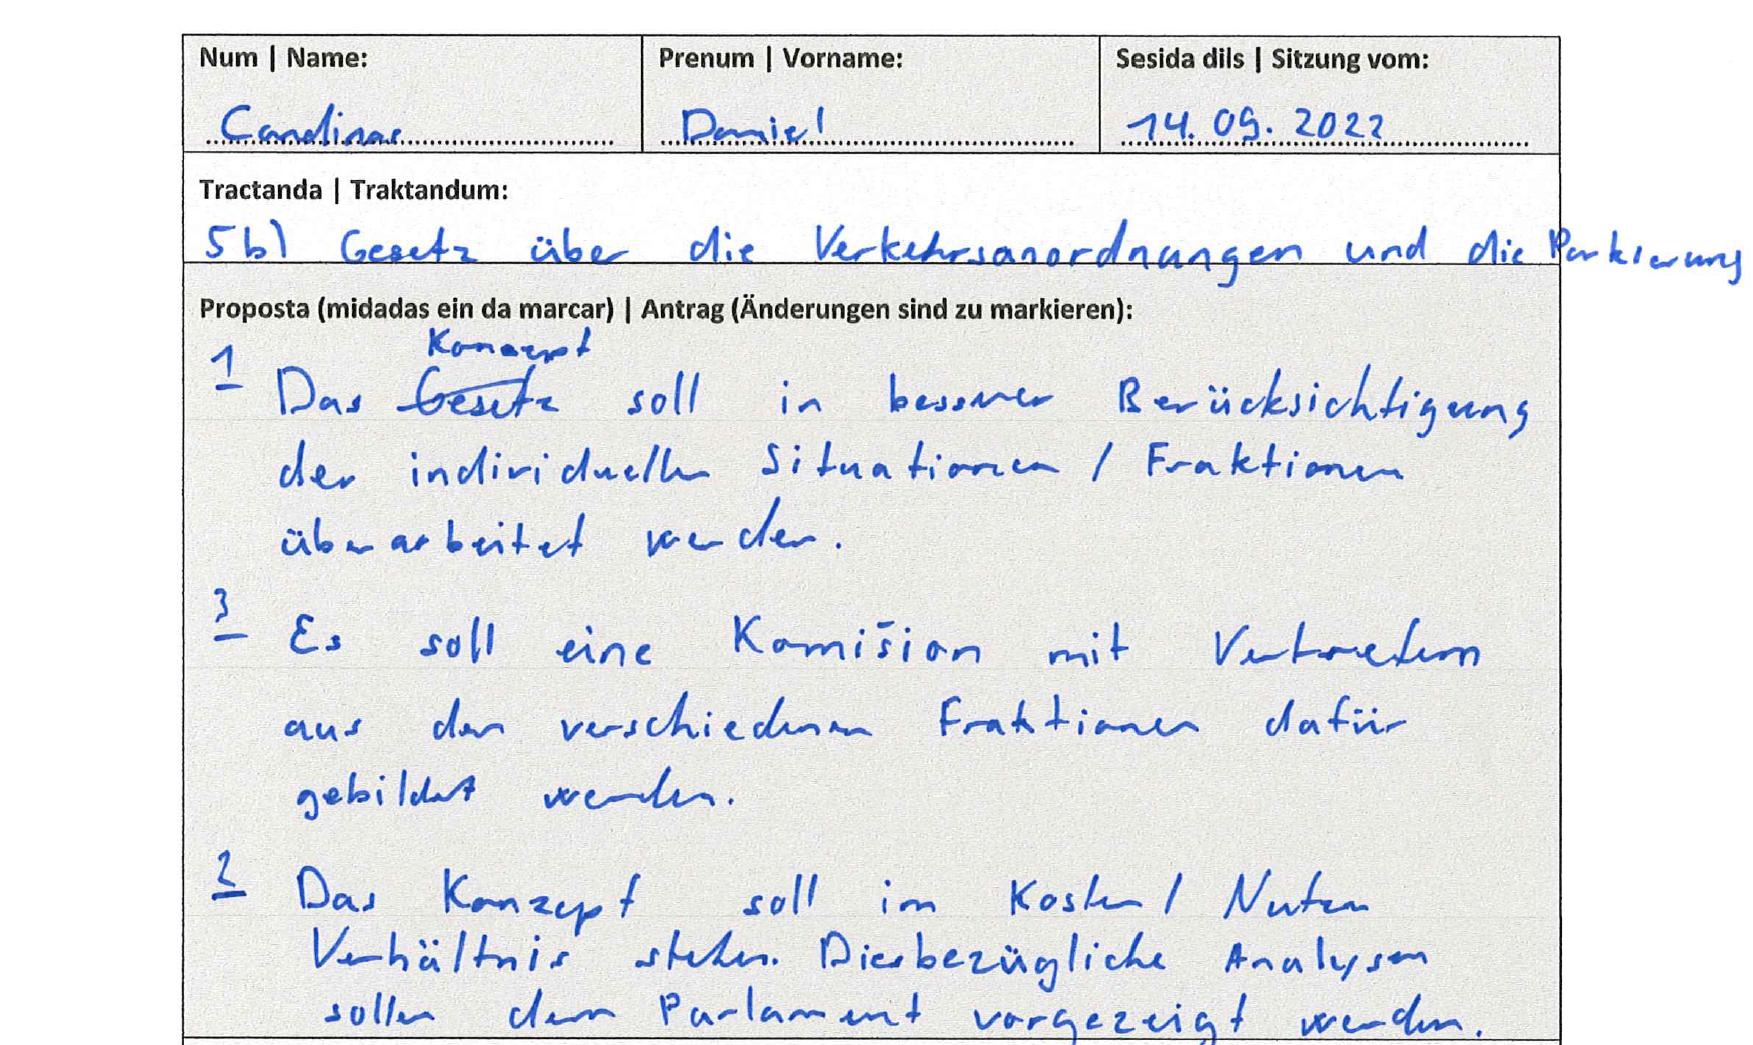 Num | Name:
Candinas
Prenum | Vorname:
Daniel
Sesida dils | Sitzung vom:
14. 09. 2022
Tractanda | Traktandum:
5b) Gesetz über die Verkehrsanordnungen und die Parkierung
Proposta (midadas ein da marcar) | Antrag (Änderungen sind zu markieren):
Konzept
1 Das Gesetz soll in besserer Berücksichtigung
der individuellen Situationen / Fraktionen
überarbeitet werden.
3 Es soll eine Komission mit Vertretern
aus den verschiedenen Fraktionen dafür
gebildet werden.
2 Das Konzept soll im Kosten / Nutzen
Verhältnis stehen. Diesbezügliche Analysen
sollen dem Parlament vorgezeigt werden.